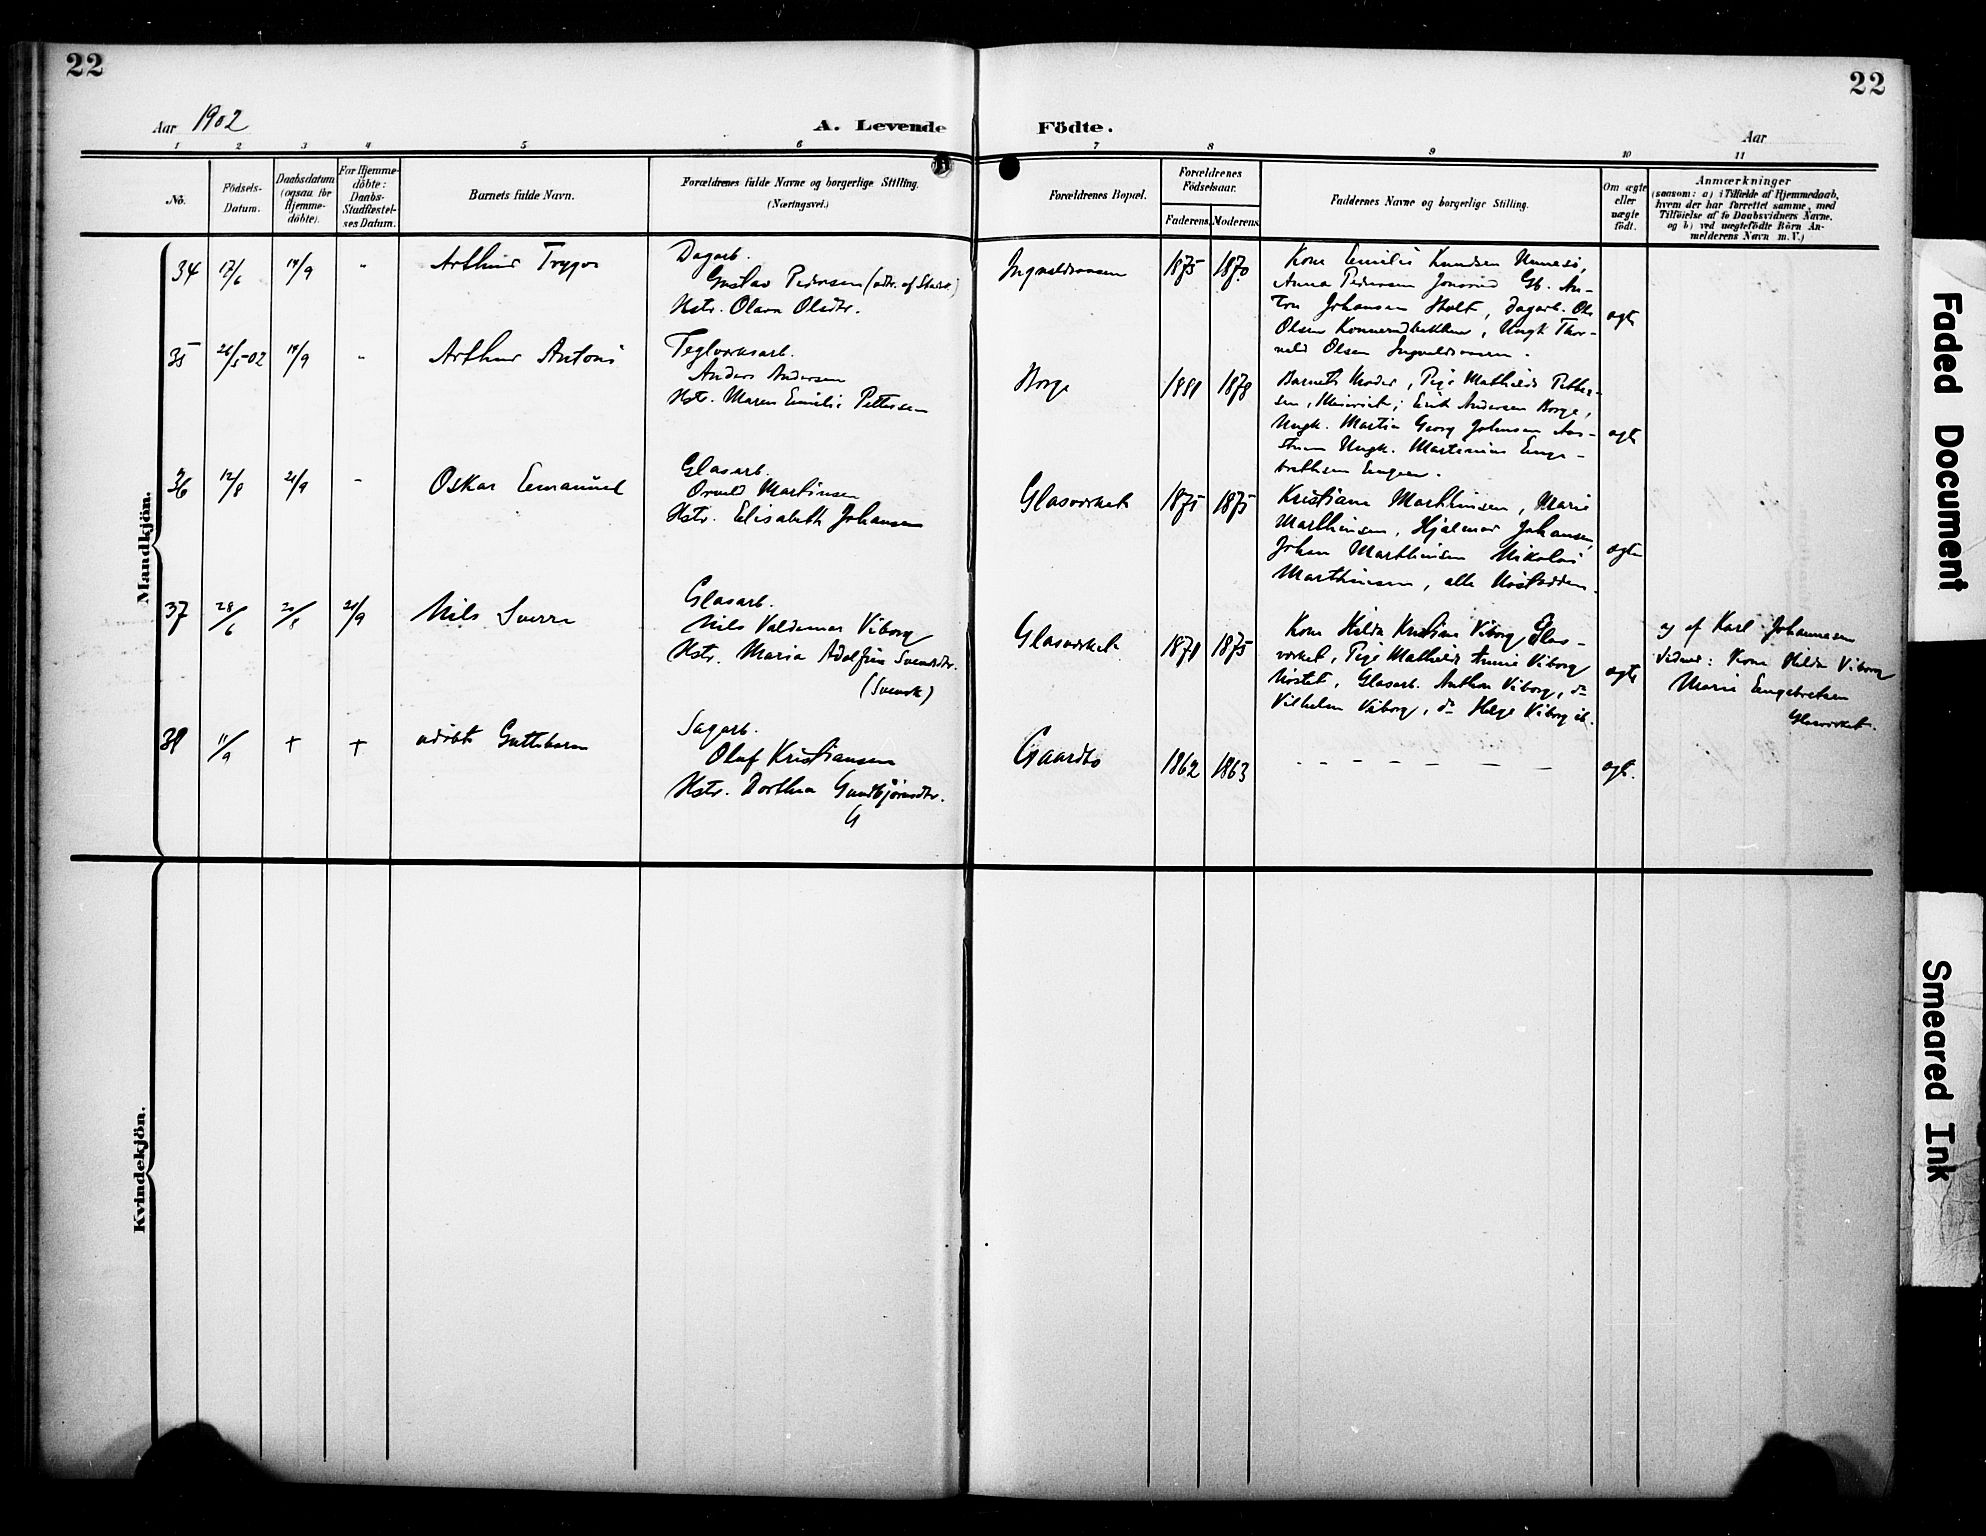 22
22
Aar 1902
A. Levende Födte.
Aar
1 2 3 4 5 6 7 8 9 10 11
No.
Födsels-Datum.
Daabsdatum (ogsaa for Hjemme-döbte).
For Hjemme-döbte: Daabs-Stadfæstel-ses Datum.
Barnets fulde Navn.
Forældrenes fulde Navne og borgerlige Stilling.
(Næringsvei.)
Forældrenes Bopæl.
Forældrenes Födselsaar.
Faderens Moderens
Faddernes Navne og borgerlige Stilling.
Om ægte eller uægte födt.
Anmærkninger
(saasom: a) i Tilfælde af Hjemmedaab,
hvem der har forrettet samme, med
Tilföielse af to Daabsvidners Navne.
og b) ved uægtefödte Börn An-
melderens Navn m. V.)
Mandkjön.
34 17/6 14/9 - Arthur Trygve
Dagarb.
Gustav Pedersen
Hstr. Olava Olsdtr.
1875 1870
Kone Emilie Knudsen
Anna Pedersen Gb. An-
ton Johansen Holt, Dagarb. Ole
Olsen, Ungk. Thor-
vald Olsen
ægte
35 26/5-02 14/9 - Arthur Antoni
Teglverksarb.
Anders Andersen
Hstr. Maren Emilie Pettersen
Borge
1881 1878
Barnets Moder, Pige Mathilde Petter-
sen, Erik Andersen Borge,
Ungk. Martin Georg Johansen Aas-
Ungk. Martinius Enge-
brethsen Engen.
ægte
36 12/8 21/9 - Oskar Emanuel
Glasarb.
Orvald Martinsen
Hstr. Elisabeth Johansen
Glasværket
1875 1875
Kristiane Marthinsen, Marie
Marthinsen, Hjalmar Johansen,
Johan Marthinsen Nikolai
Marthinsen, alle
ægte
37 28/6 21/9 Nils Sverre
Glasarb.
Nils Valdemar Viborg
Hstr. Maria Adolfine Svensdtr.
(Svensk)
Glasværket
1871 1875
Kone Hilda Kristine Viborg Glas-
værket, Pige Mathilde Annie Viborg
Höstet, Glasarb. Anthon Viborg, do
Vilhelm Viborg, do Helge Viborg ib.
ægte
af Karl Johannesen
Vidner: Kone Hilda Viborg
Marie Engebretsen
Glasværket.
38 11/9 + + udöbt Guttebarn
Sagarb.
Oluf Kristiansen
Hstr. Dorthea Gundbjörnsdtr.
Gaardbo
1862 1863
- - - - - - -
ægte.
Kvindekjön.
Faded Document
Smeared Ink